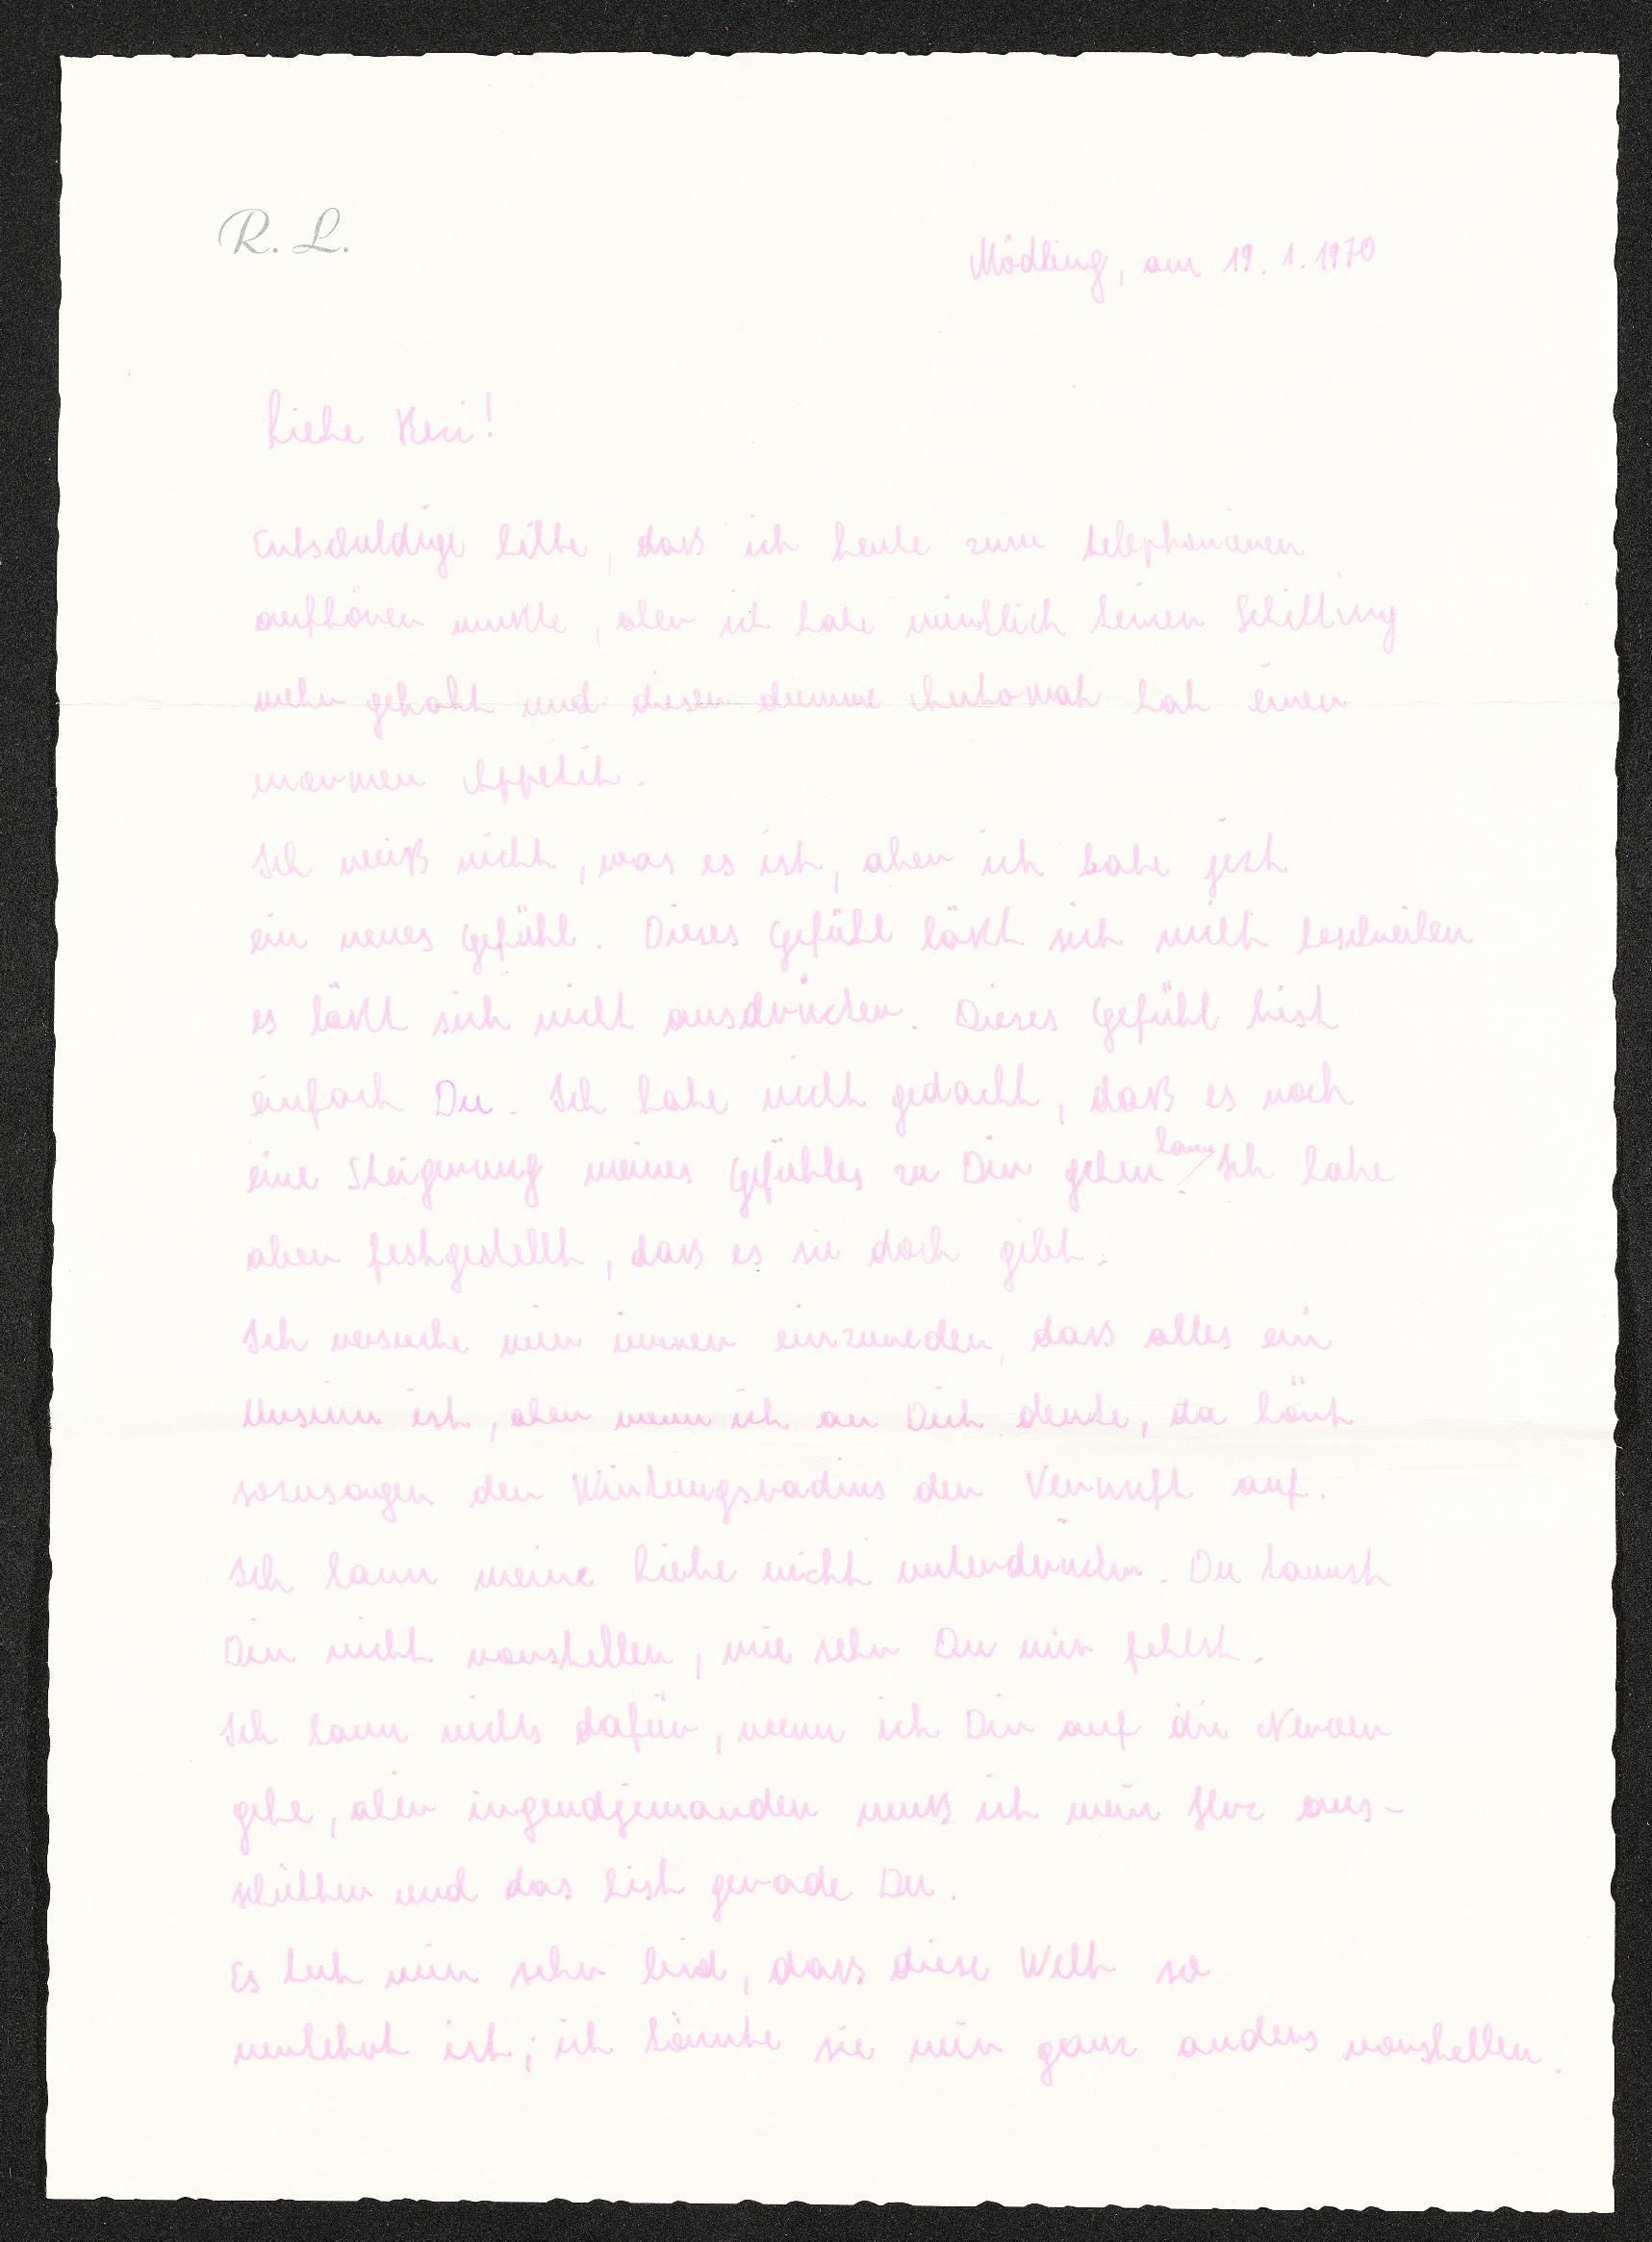 R. L.
Mödling, am 19. 1. 1970
Liebe Heri!
Entschuldige bitte, daß ich heute zum telephonieren
aufhören mußte, aber ich habe wirklich keinen Schilling
mehr gehabt und dieser dumme Automat hat einen
enormen Appetit.
Ich weiß nicht, was es ist, aber ich habe jetzt
ein neues Gefühl. Dieses Gefühl läßt sich nicht beschreiben
es läßt sich nicht ausdrücken. Dieses Gefühl bist
einfach Du. Ich habe nicht gedacht, daß es noch
eine Steigerung meines Gefühles zu Dir geben kann. Ich habe
aber festgestellt, daß es sie doch gibt.
Ich versuche mir immer einzureden, daß alles ein
Unsinn ist, aber wenn ich an Dich denke, da hört
sozusagen der Wirkungsradius der Vernunft auf.
Ich kann meine Liebe nicht unterdrücken. Du kannst
Dir nicht vorstellen, wie sehr Du mir fehlst.
Ich kann nichts dafür, wenn ich Dir auf die Nerven
gehe, aber irgendjemanden muß ich mein Herz aus-
schütten und das bist gerade Du.
Es tut mir sehr leid, daß diese Welt so
verkehrt ist; ich könnte sie mir ganz anders vorstellen.